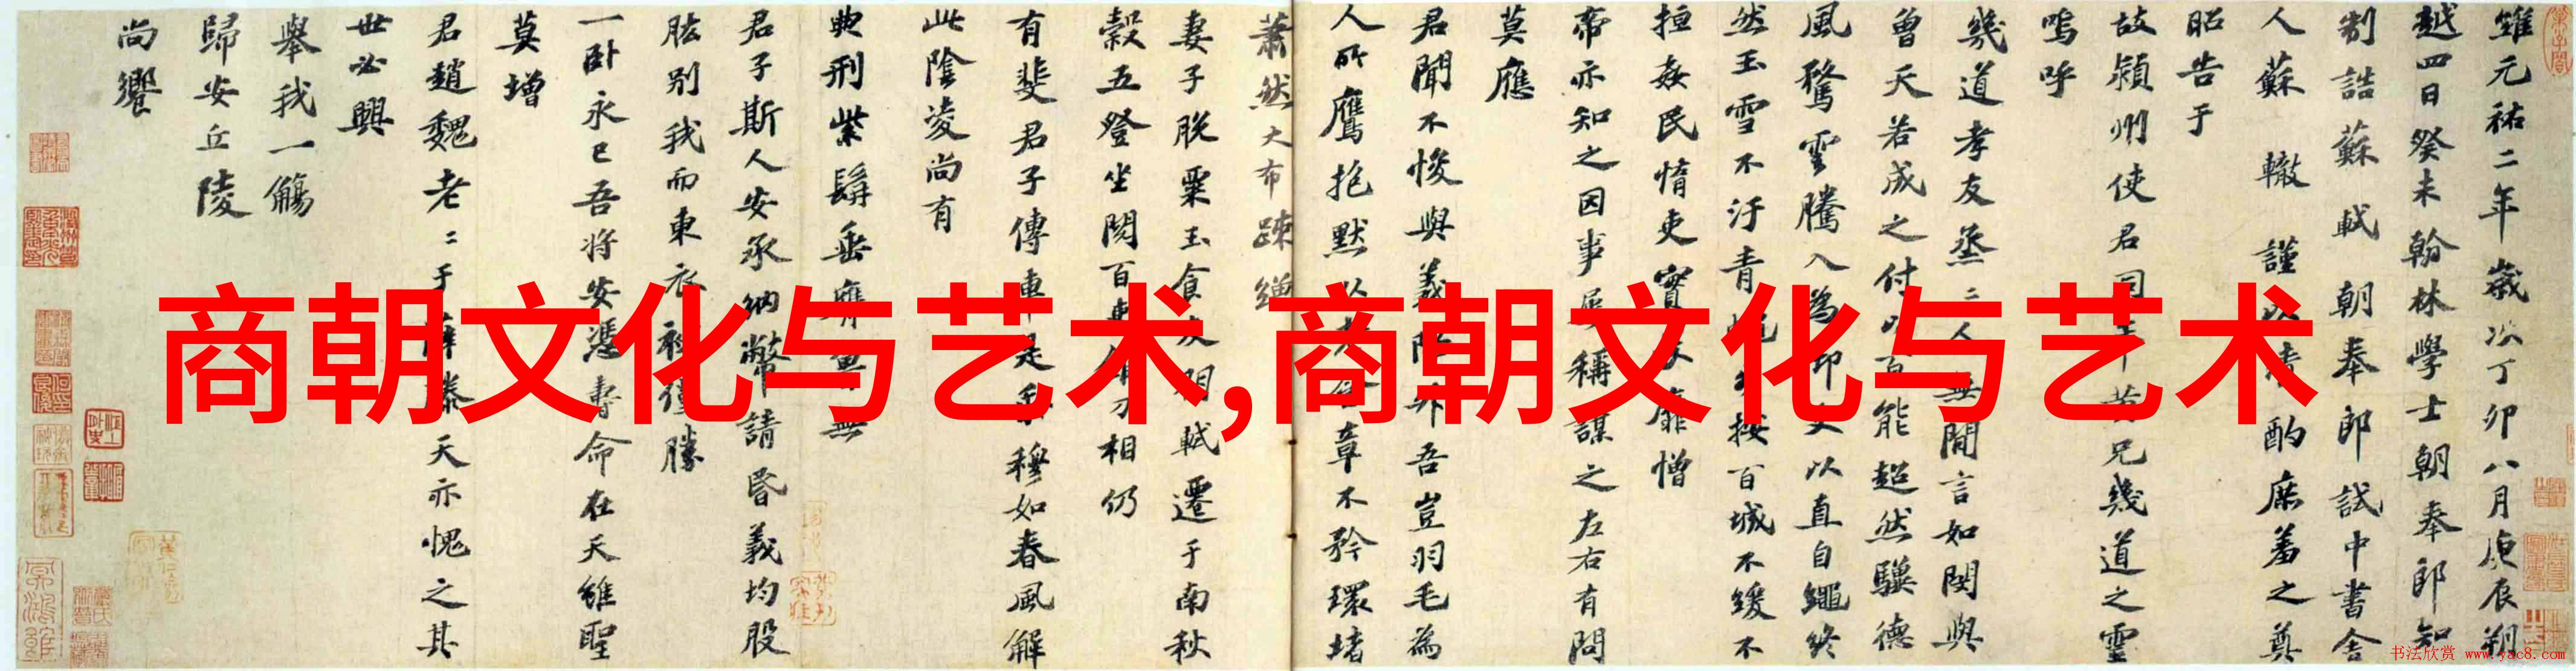 維元祐二年歲次丁卯八月庚辰朔
越四日癸未翰林學士朝奉郎知
制誥蘇軾朝奉郎試中書舍
人蘇轍謹以清酌庶羞之奠
昭告于
故潁州使君同年黃兄幾道之靈
嗚呼
幾道孝友烝二人無間言如閔與
曾天若成之付以百能超然驥德
風騖雲騰入為御史以直自繩終
然玉雪不汙青蠅按百城不緩不
拒姦民惰吏實畏靡憎
帝亦知之因事屢稱謀之左右有問
莫應
君聞不悛與義降升吾豈羽毛為
人所鷹抱默以老終章不矜環堵
蕭然大布疎繒
妻子脫粟玉食友朋軾遷于南秋
穀五登坐閱百吏錐刀相仍
有斐君子傳車是乘穆如春風解
此陰凌尚有
典刑紫髯垂膺魯無
君子斯人安承納幣請昏義均股
肱別我而東衣袂僅勝
一卧永已吾將安憑壽命在天雖聖
莫增
君趙魏老二于薛滕天亦愧之其
世必興
舉我一觴
歸安丘陵
尚饗
商朝文化与艺术,商朝文化与艺术
书法欣赏 www.yac8.com